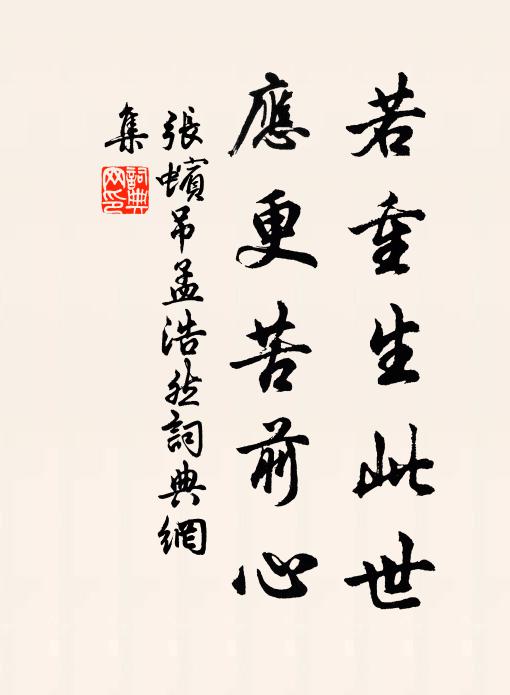 若重生此世
應更苦前心
張蠙吊孟浩然詞典網
集
詞典網印